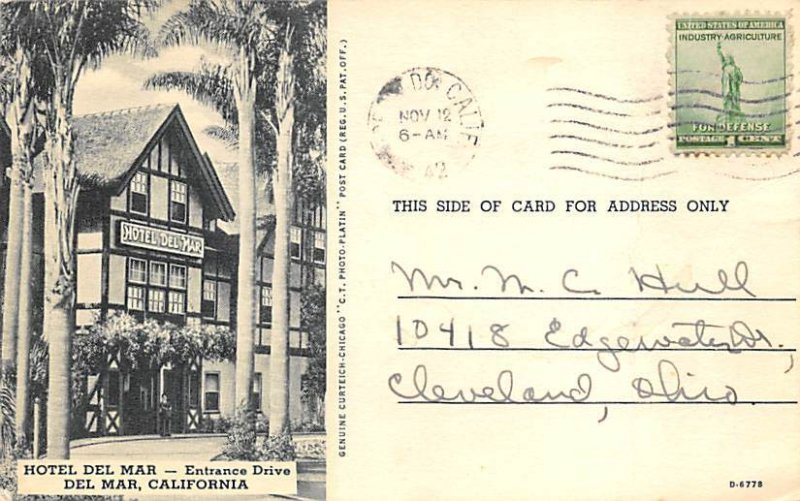 HOTEL DEL MAR
HOTEL DEL MAR — Entrance Drive
DEL MAR, CALIFORNIA
GENUINE CURTEICH-CHICAGO "C.T. PHOTO-PLATIN" POST CARD (REG. U.S. PAT. OFF.)
DO, CALIF
NOV 12
6-AM
42
UNITED STATES OF AMERICA
INDUSTRY-AGRICULTURE
FOR DEFENSE
POSTAGE 1 CENT
THIS SIDE OF CARD FOR ADDRESS ONLY
Mr. M. C. Hull
10418 Edgewater Dr.,
Cleveland, Ohio.
D-6778